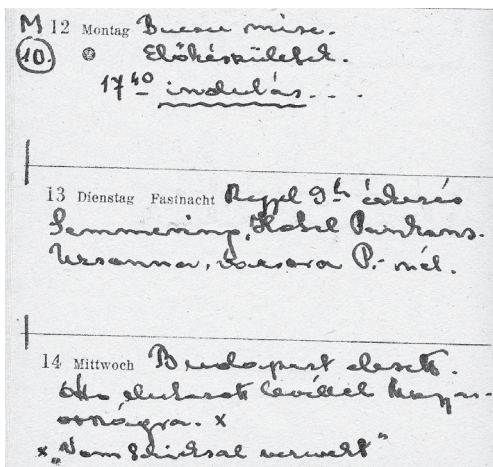 M 12 Montag Bucsu mise.
10. Előkészületek.
17 40 indulás. . .
13 Dienstag Fastnacht Reggel 9h érkezés
Semmering, Hotel Panhans.
Uzsonna, vacsora P.-nél.
14 Mittwoch Budapest elesett.
Otto elutazott levéllel Magyar-
országra. x
x „Vom Schicksal verweht"